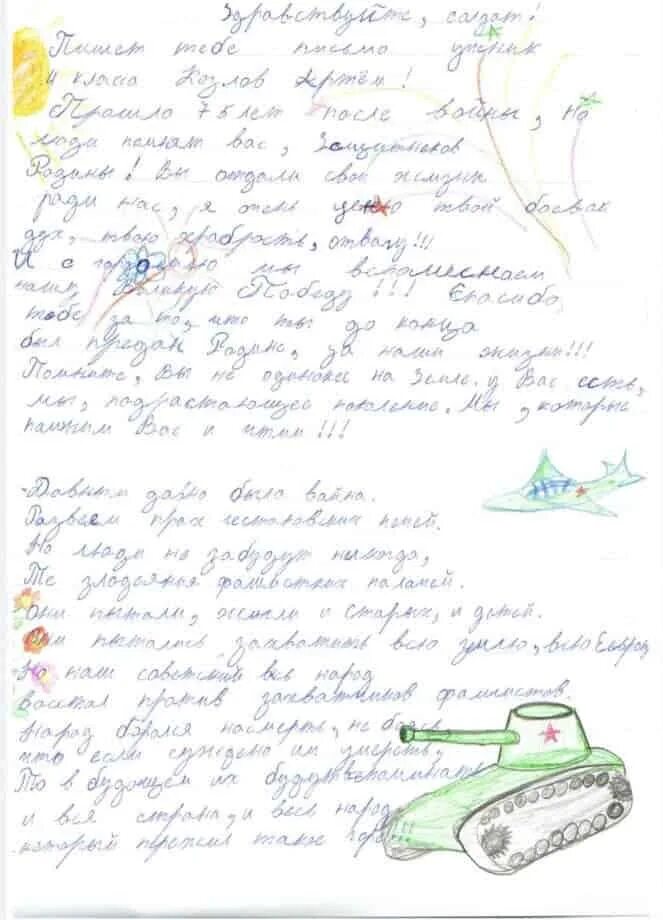 Здравствуйте, солдат!
Пишет тебе письмо ученик
4 класса Козлов Артём!
Прошло 75 лет после войны, но
люди помнят вас, Защитников
Родины! Вы отдали свои жизни
ради нас, я очень ценю твой боевой
дух, твою храбрость, отвагу!!!
И с гордостью мы вспоминаем
нашу Великую Победу!!! Спасибо
тебе за то, что ты до конца
был предан Родине, за наши жизни!!!
Помните, Вы не одиноки на Земле. у Вас есть,
мы, подрастающее поколение. Мы, которые
помним Вас и чтим!!!
-Давным давно была война.
Развеем прах гестаповских печей.
Но люди не забудут никогда,
Те злодеянья фашистких палачей.
Они пытали, жгли и старых, и детей.
Они пытались захватить всю землю, всю Европу
-Но наш советский весь народ
восстал против захватчиков фашистов.
Народ боролся насмерть, не боясь
что если суждено им умереть,
То в будующем их будут вспоминать
и вся страна, и весь народ
который пережил такое горе!!!